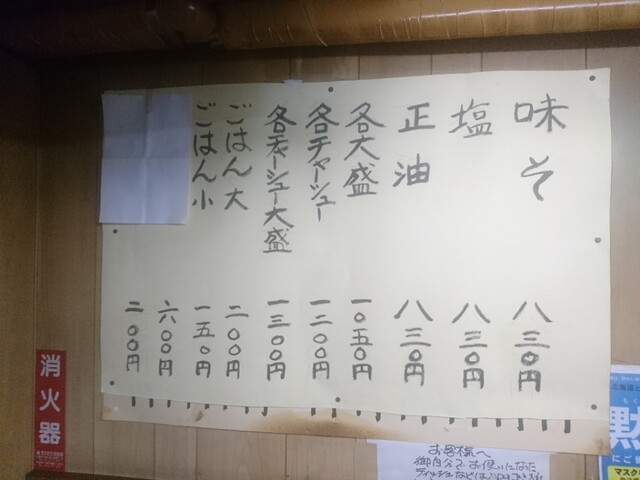 味そ 八三〇円
塩 八三〇円
正油 八三〇円
各大盛 一〇五〇円
各チャーシュー 一二〇〇円
各チャーシュー大盛 一三〇〇円
ごはん大 二〇〇円
ごはん小 一五〇円
六〇〇円
二〇〇円
消火器
お客様へ
御自分でお使いになった
ティッシュなどは
黙
マスク